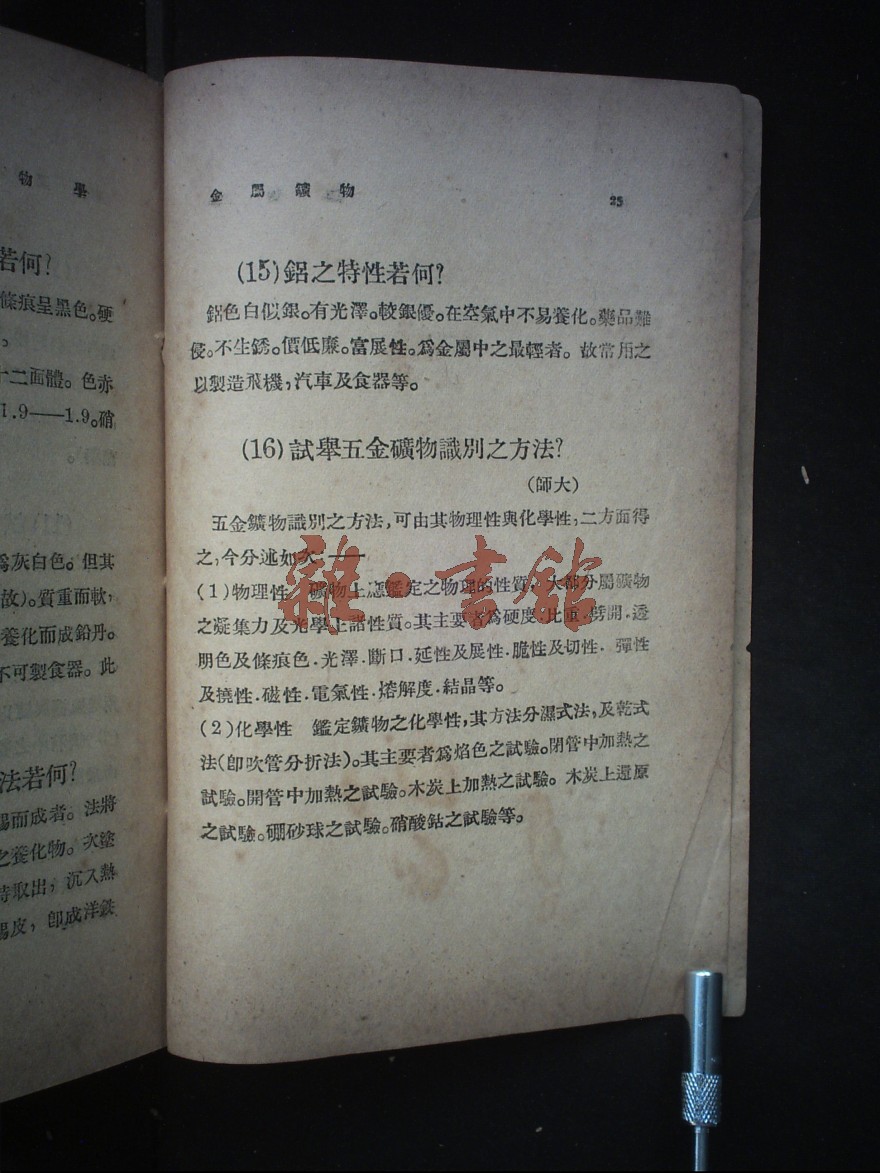 物學
若何?
條痕呈黑色。硬
。
十二面體。色赤
1.9——1.9。硝
爲灰白色。但其
故)。質重而軟,
養化而成鉛丹。
不可製食器。此
法若何?
錫而成者。法將
之養化物。次塗
時取出,沉入熱
錫皮,卽成洋鉄
金屬鑛物 25
(15)鋁之特性若何?
鋁色白似銀。有光澤。較銀優。在空氣中不易養化。藥品難
侵。不生銹。價低廉。富展性。爲金屬中之最輕者。故常用之
以製造飛機,汽車及食器等。
(16)試舉五金礦物識別之方法?
(師大)
五金鑛物識別之方法,可由其物理性與化學性,二方面得
之,今分述如次:——
(1)物理性 礦物上應鑑定之物理的性質,大都分屬礦物
之凝集力及光學上諸性質。其主要者爲硬度.比重.劈開.透
明色及條痕色.光澤.斷口.延性及展性.脆性及切性.彈性
及撓性.磁性.電氣性.熔解度.結晶等。
(2)化學性 鑑定鑛物之化學性,其方法分濕式法,及乾式
法(卽吹管分折法)。其主要者爲焰色之試驗。閉管中加熱之
試驗。開管中加熱之試驗。木炭上加熱之試驗。木炭上還原
之試驗。硼砂球之試驗。硝酸鈷之試驗等。
雜·書館